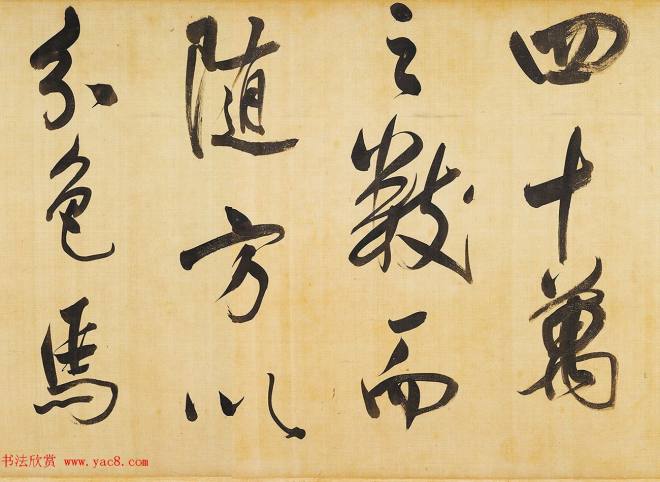 四十萬
之數而
隨方以
分色焉
书法欣赏 www.yac8.com